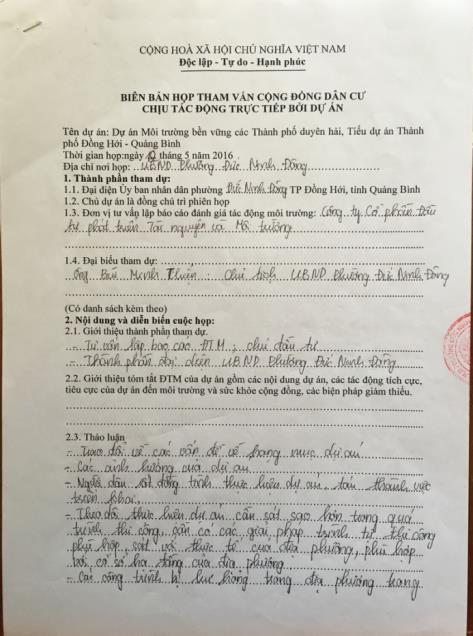 CỘNG HOÀ XÃ HỘI CHỦ NGHĨA VIỆT NAM
Độc lập - Tự do - Hạnh phúc
BIÊN BẢN HỌP THAM VẤN CỘNG ĐỒNG DÂN CƯ
CHỊU TÁC ĐỘNG TRỰC TIẾP BỞI DỰ ÁN
Tên dự án: Dự án Môi trường bền vững các Thành phố duyên hải, Tiểu dự án Thành
phố Đồng Hới - Quảng Bình
Thời gian họp:ngày tháng 5 năm 2016
Địa chỉ nơi họp: UBND Phường Đức Ninh Đông
1. Thành phần tham dự:
1.1. Đại diện Ủy ban nhân dân phường Đức Ninh Đông TP Đồng Hới, tỉnh Quảng Bình
1.2. Chủ dự là đồng chủ trì phiên họp
1.3. Đơn vị tư vấn lập báo cáo đánh giá tác động môi trường: Công ty Cổ phần Đầu
tư phát triển Tài nguyên và Môi trường
1.4. Đại biểu tham dự:
Ông Minh Thuận: Chủ tịch UBND Phường Đức Ninh Đông
(Có danh sách kèm theo)
2. Nội dung và diễn biến cuộc họp:
2.1. Giới thiệu thành phần tham dự.
- Tư vấn lập báo cáo ĐTM; chủ đầu tư
- Thành phần đại diện UBND Phường Đức Ninh Đông
2.2. Giới thiệu tóm tắt ĐTM của dự án gồm các nội dung dự án, các tác động tích cực,
tiêu cực của dự án đến môi trường và sức khỏe cộng đồng, các biện pháp giảm thiểu.
2.3. Thảo luận
- Trao đổi về các vấn đề về hạng mục dự án
- Các ảnh hưởng của dự án
- Người dân rất đồng tình thực hiện dự án, tán thành việc
triển khai.
- Theo dõi thực hiện dự án cần sát sao hơn trong quá
trình thi công, cần có các giải pháp trình tự thi công
phù hợp, sát với thực tế của địa phương, phù hợp
với cơ sở hạ tầng của địa phương
- Các công trình bị hư hỏng trong địa phương trong